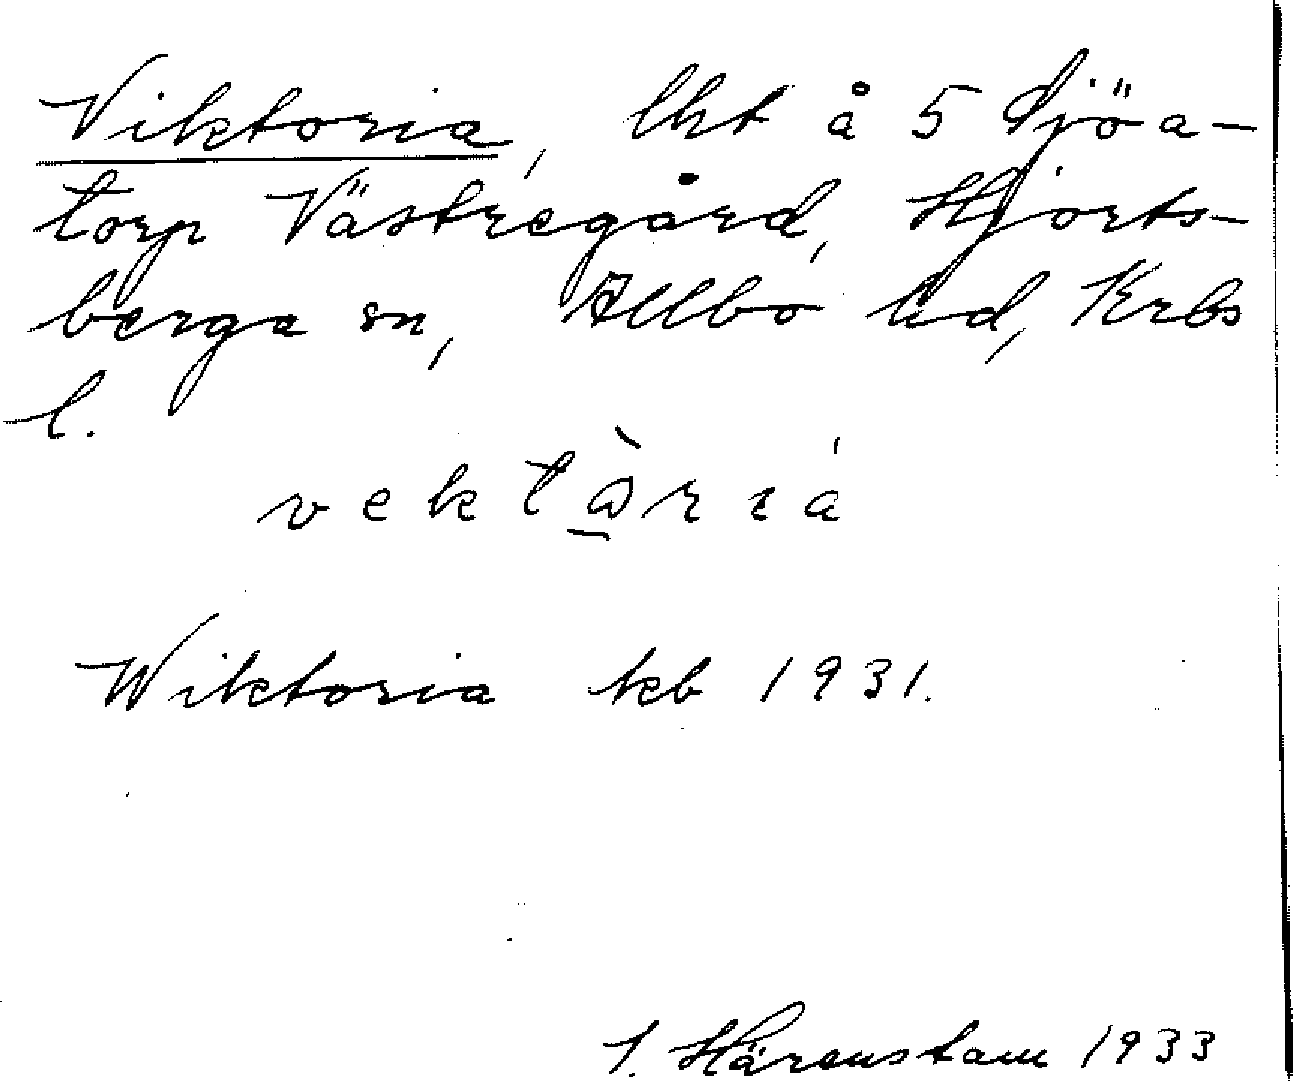 Viktoria, lht å 5 Sjöa-
torp Västregård, Hjorts-
berga sn, Allbo hd, Krbs
l.
vektàriá
Wiktoria kb 1931.
I. Härenstam 1933